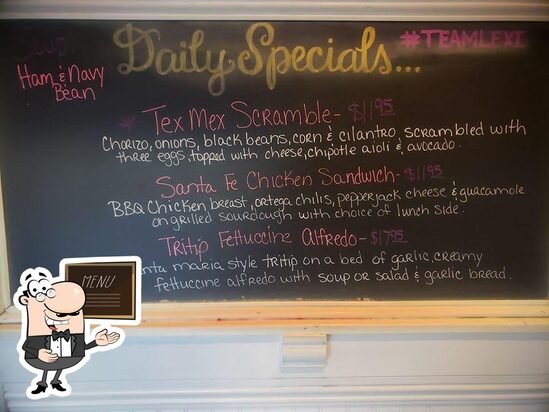 Soup:
Ham & Navy
Bean
Daily Specials...
#TEAMLEXI
* Tex Mex Scramble - $11.95
Chorizo, onions, black beans, corn & cilantro, scrambled with
three eggs, topped with cheese, chipotle aioli & avocado.
Santa Fe Chicken Sandwich - $11.95
BBQ Chicken breast, ortega chilis, pepperjack cheese & guacamole
on grilled sourdough with choice of lunch side.
Tritip Fettuccine Alfredo - $17.95
nta maria style tritip on a bed of garlic, creamy
fettuccine alfredo with soup or salad & garlic bread.
MENU